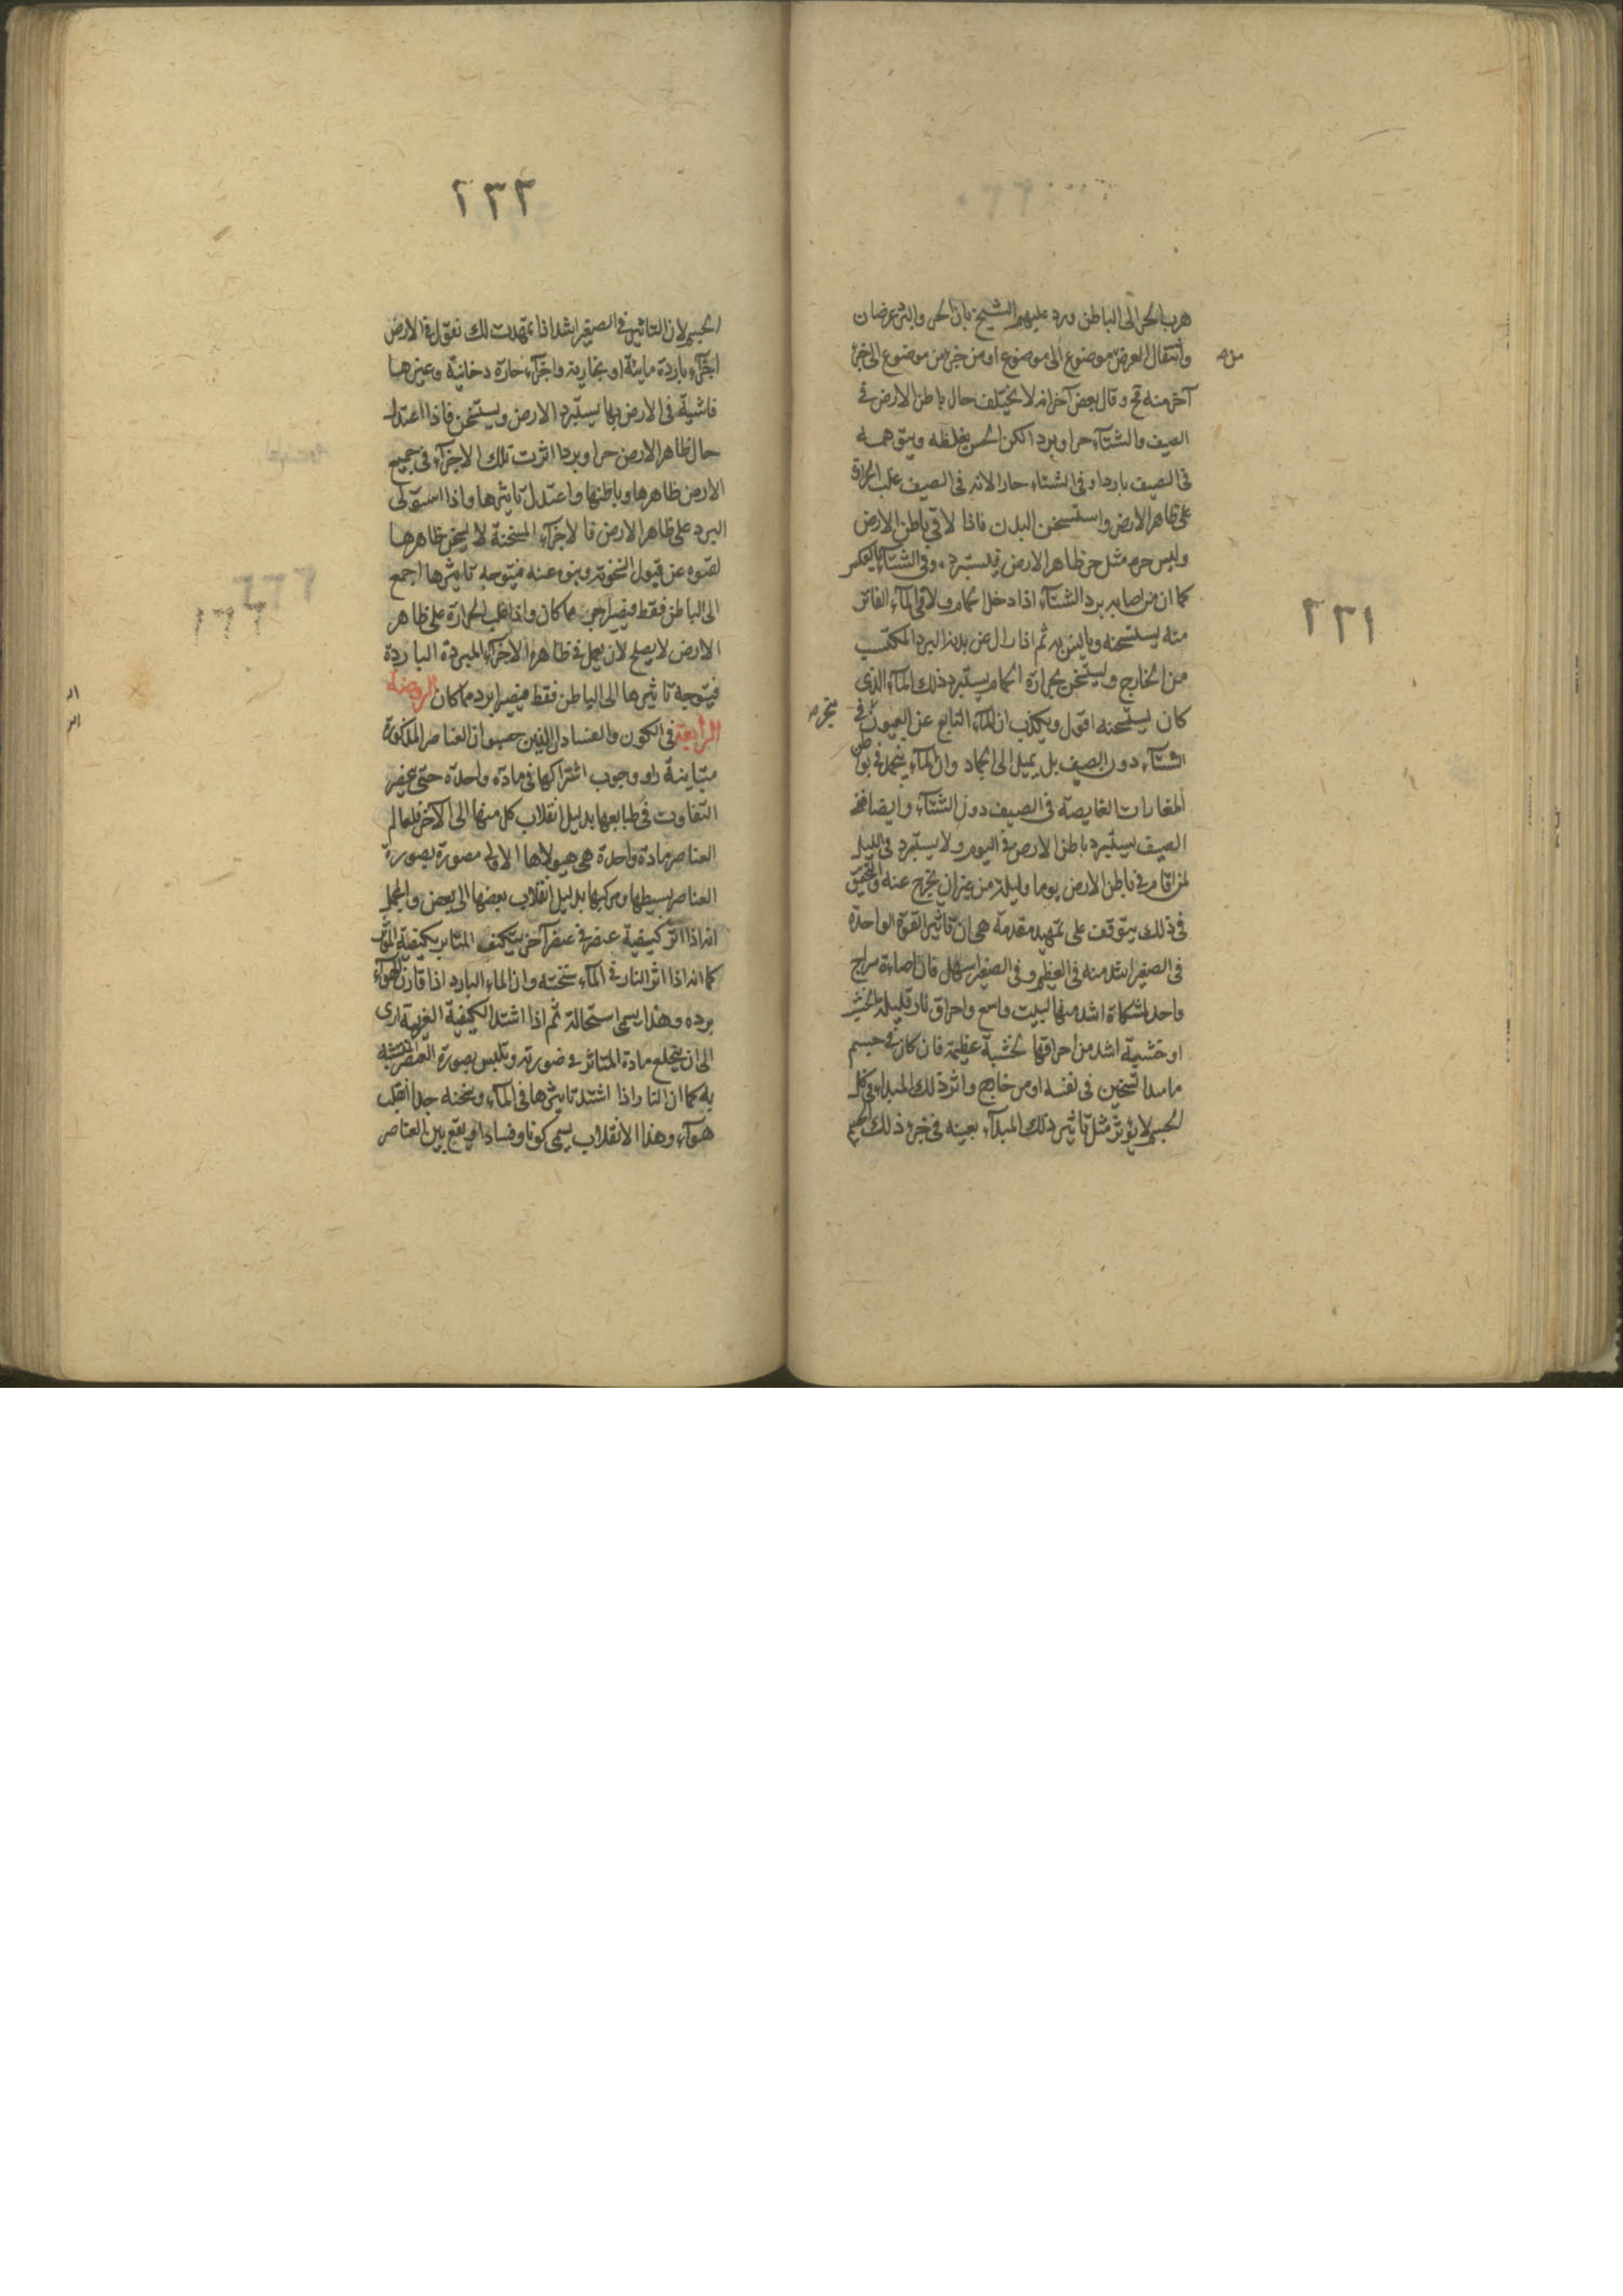 ٢٣١
هرب الحر الى الباطن ورد عليهم الشيخ بان الحر والبرد عرضان
وانتقال العرض موضوع الى موضوع او من جزء من موضوع الى جزء
من
آخر منه مح وقال بعض آخر انه لا يختلف حال باطن الارض في
الصيف والشتاء حرا وبردا لكن الحس يغلطه ويتوهمه
في الصيف باردا وفي الشتاء حارا لانه في الصيف غلب الحرارة
على ظاهر الارض واستسخن البدن فاذا لاقي باطن الارض
وليس حره مثل حر ظاهر الارض فيستبرد وفي الشتاء بالعكس
كما ان من اصابه برد الشتاء اذا دخل الحمام ولاقي الماء الفاتر
منه يستسخنه ثم اذا زال عن بدنه البرد المكتسب
من الخارج وليسخن بحرارة الحمام يستبرد ذلك الماء الذي
كان يستسخنه اقول ويكذب ان الماء النابع عن العيون في
الشتاء دون الصيف بل يميل الى الجماد وان الماء ينجمد في بواطن
المغارات الغايصة في الصيف دون الشتاء وايضا ففي
الصيف يستبرد باطن الارض في اليوم ولا يستبرد في الليل
لمن اقام في باطن الارض يوما وليلة من غير ان يخرج عنه والتحقيق
في ذلك يتوقف على تمهيد مقدمة هي ان تأثير القوة الواحدة
في الصغير اشد منه في العظيم وفي الصغير اسهل فان اضاءة سراج
واحد لمشكاة اشد منها لبيت واسع واحراق نار قليلة لخشب
او خشيبة اشد من احراقها لخشبة عظيمة فان كان في جسم
ما مبدا تسخين في نفسه او من خارج واثر ذلك المبداء في كل
الجسم لا يؤثر مثل تاثير ذلك المبداء بعينه في جزء ذلك الجسم
٢٣٢
الجسم لان التاثير في الصغير اشد اذا تمهدت لك نقول في الارض
اجزاء باردة مائية او بخارية واجزاء حارة دخانية وغيرها
فاشية في الارض بها يستبرد الارض ويستسخن فاذا اعتدل
حال ظاهر الارض حرا وبردا اثرت تلك الاجزاء في جميع
الارض ظاهرها وباطنها واعتدل تاثيرها واذا استولى
البرد على ظاهر الارض فالاجزاء المسخنة لا يسخن ظاهرها
عن قبول السخونة ونبوه عنه فيتوجه تاثيرها اجمع
الى الباطن فقط فيصير احر مما كان واذا غلب الحرارة على ظاهر
الارض لا يصلح لان يعمل في ظاهرها الاجزاء المبردة الباردة
فيتوجه تاثيرها الى الباطن فقط فيصير ابرد مما كان الروضة
الرابعة في الكون والفساد ان الذين حسبوا ان العناصر المذكورة
متباينة راوا وجوب اشتراكها في مادة واحدة حتى
التفاوت في طبايعها بدليل انقلاب كل منها الى الآخر فلعالم
العناصر مادة واحدة هي هيولاها الاولى مصورة بصورة
العناصر بسيطها ومركبها بدليل انقلاب بعضها الى بعض والمجمل
انه اذا اثر كيفية عنصر في عنصر آخر يتكيف المتاثر بكيفية المؤثر
كما انه اذا اثر النار في الماء سخنته وان الماء البارد اذا قارن الهواء
برده وهذا يسمى استحالة ثم اذا اشتد الكيفية الغريبة ادى
الى ان يخلع مادة المتاثر صورته وتلبس بصورة العنصر
به كما ان النار اذا اشتد تاثيرها في الماء وسخنه جدا انقلب
هواء وهذا الانقلاب يسمى كونا وفسادا ويقع بين العناصر